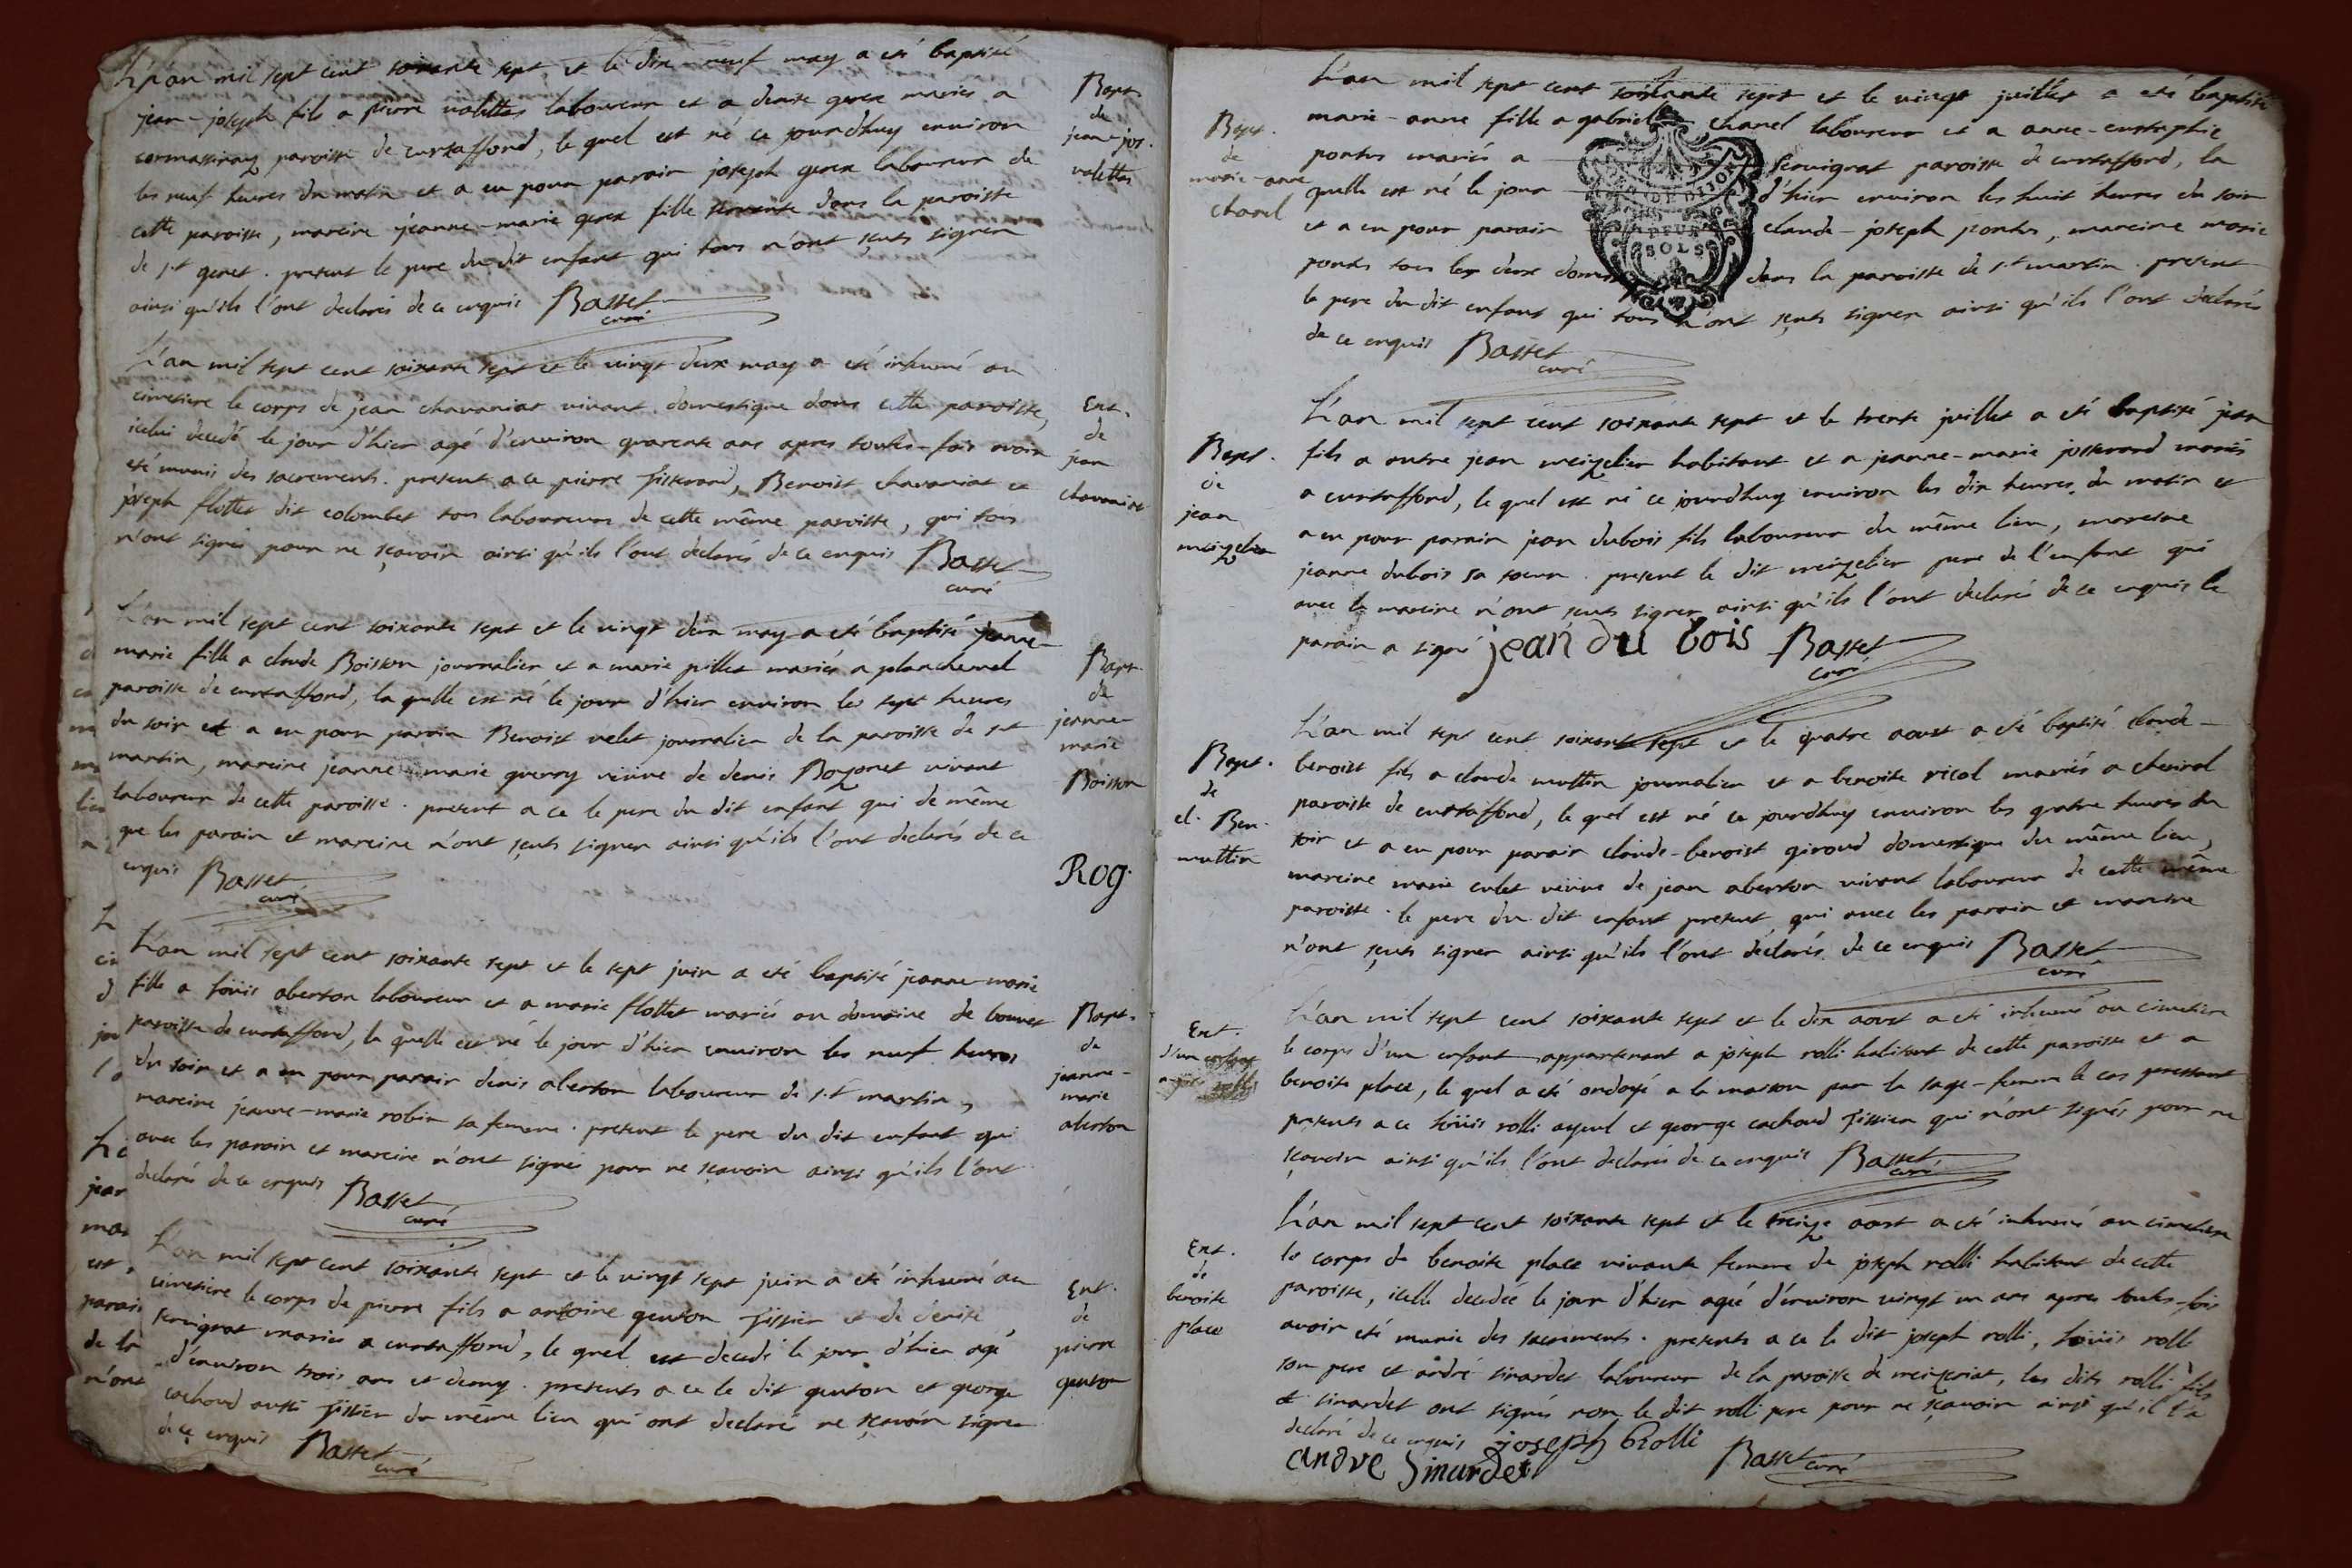 L'an mil sept cent soixante sept et le dix-neuf may a eté baptisé
jean-joseph fils a pierre valettas laboureur et a denise gerex mariés a
cormassiray paroisse de curtaffond, le quel est né ce jourdhuy environ
les neuf heures du matin et a eu pour parain joseph gerex laboureur de
cette paroisse, mareine jeanne-marie gerex fille servante dans la paroisse
de st genet. present le pere du dit enfant qui tous n'ont sçeuts signer
ainsi qu'ils l'ont declarés de ce enquis Basset
curé
Bapt.
de
jean-jos.
valettas
L'an mil sept cent soixante sept et le vingt deux may a eté inhumé au
cimetiere le corps de jean chavaniat vivant domestique dans cette paroisse,
icelui decedé le jour d'hier agé d'environ quarente ans apres toutes-fois avoir
eté munis des sacrements. present a ce pierre Tisserand, Benoist chavaniat et
joseph flottet dit colombet tous laboureurs de cette même paroisse, qui tous
n'ont signés pour ne sçavoir ainsi qu'ils l'ont declarés de ce enquis Basset
curé
Ent.
de
jean
chavaniat
L'an mil sept cent soixante sept et le vingt deux may a eté baptisé jeanne-
marie fille a claude Boisson journalier et a marie pillet mariés a planchenel
paroisse de curtaffond, la quelle est né le jour d'hier environ les sept heures
du soir et a eu pour parain Benoist velet journalier de la paroisse de st
martin, mareine jeanne-marie guerry veuve de denis Bozonet vivant
laboureur de cette paroisse. present a ce le pere du dit enfant qui de même
que les parain et mareine n'ont sçeuts signer ainsi qu'ils l'ont declarés de ce
enquis Basset
curé
Bapt.
de
jeanne-
marie
Boisson
Rog.
L'an mil sept cent soixante sept et le sept juin a eté baptisé jeanne-marie
fille a loüis aberton laboureur et a marie flottet mariés au domaine de bouvet
paroisse de curtaffond, la quelle est né le jour d'hier environ les neuf heures
du soir et a eu pour parain denis aberton laboureur de st martin,
mareine jeanne-marie robin sa femme. present le pere du dit enfant qui
avec les parain et mareine n'ont signés pour ne sçavoir ainsi qu'ils l'ont
declarés de ce enquis Basset
curé
Bapt.
de
jeanne-
marie
aberton
L'an mil sept cent soixante sept et le vingt sept juin a eté inhumé au
cimetiere le corps de pierre fils a antoine genton Tissier et de denise
servignat mariés a curtaffond, le quel est decedé le jour d'hier agé
d'environ trois ans et demy. presents a ce le dit genton et george
cachoud aussi Tissier du même lieu qui ont declaré ne sçavoir signer
de ce enquis Basset
curé
Ent.
de
pierre
genton
L'an mil sept cent soixante sept et le vingt juillet a eté baptisé
marie-anne fille a gabriel chanel laboureur et a anne-eustaphie
pontus mariés a servignat paroisse de curtaffond, la
quelle est né le jour d'hier environ les huit heures du soir
et a eu pour parain claude-joseph pontus, mareine marie
pontus tous les deux dans la paroisse de st martin. present
le pere du dit enfant qui tous n'ont sçeuts signer ainsi qu'ils l'ont declarés
de ce enquis Basset
curé
DE DIJON
DEUX
SOLS
Bapt.
de
marie-anne
chanel
L'an mil sept cent soixante sept et le trente juillet a eté baptisé jean
fils a autre jean meizelier habitant et a jeanne-marie josserand mariés
a curtaffond, le quel est né ce jourdhuy environ les dix heures du matin et
a eu pour parain jean dubois fils laboureur du même lieu, mareine
jeanne dubois sa soeur. present le dit meizelier pere de l'enfant qui
avec la mareine n'ont sçeuts signer ainsi qu'ils l'ont declarés de ce enquis le
parain a signé jean du bois Basset
curé
Bapt.
de
jean
meizelier
L'an mil sept cent soixante sept et le quatre aoust a eté baptisé claude-
benoist fils a claude muttin journalier et a benoite ricol mariés a chevirol
paroisse de curtaffond, le quel est né ce jourdhuy environ les quatre heures du
soir et a eu pour parain claude-benoist giroud domestique du même lieu,
mareine marie culet veüve de jean aberton vivant laboureur de cette même
paroisse. le pere du dit enfant present, qui avec les parain et mareine
n'ont sçeuts signer ainsi qu'ils l'ont déclarés de ce enquis Basset
curé
Bapt.
de
cl. Ben.
muttin
L'an mil sept cent soixante sept et le dix aoust a eté inhumé au cimetiere
le corps d'un enfant appartenant a joseph rolli habitant de cette paroisse et a
benoite place, le quel a eté ondoyé a la maison par la sage-femme le cas pressant
presents a ce loüis rolli ayeul et george cachoud Tissier qui n'ont signés pour ne
sçavoir ainsi qu'ils l'ont declarés de ce enquis Basset
curé
Ent.
d'un enfant
rolli
L'an mil sept cent soixante sept et le treize aoust a eté inhumé au cimetiere
le corps de benoite place vivante femme de joseph rolli habitant de cette
paroisse, icelle decedée le jour d'hier agée d'environ vingt un ans apres toutes-fois
avoir eté munie des sacrements. presents a ce le dit joseph rolli, loüis rolli
son pere et andré sinardet laboureur de la paroisse de meizeriat, les dits rolli fils
et sinardet ont signés non le dit rolli pere pour ne sçavoir ainsi qu'il l'a
declaré de ce enquis joseph Rolli
andre Sinardet Basset curé
Ent.
de
benoite
place